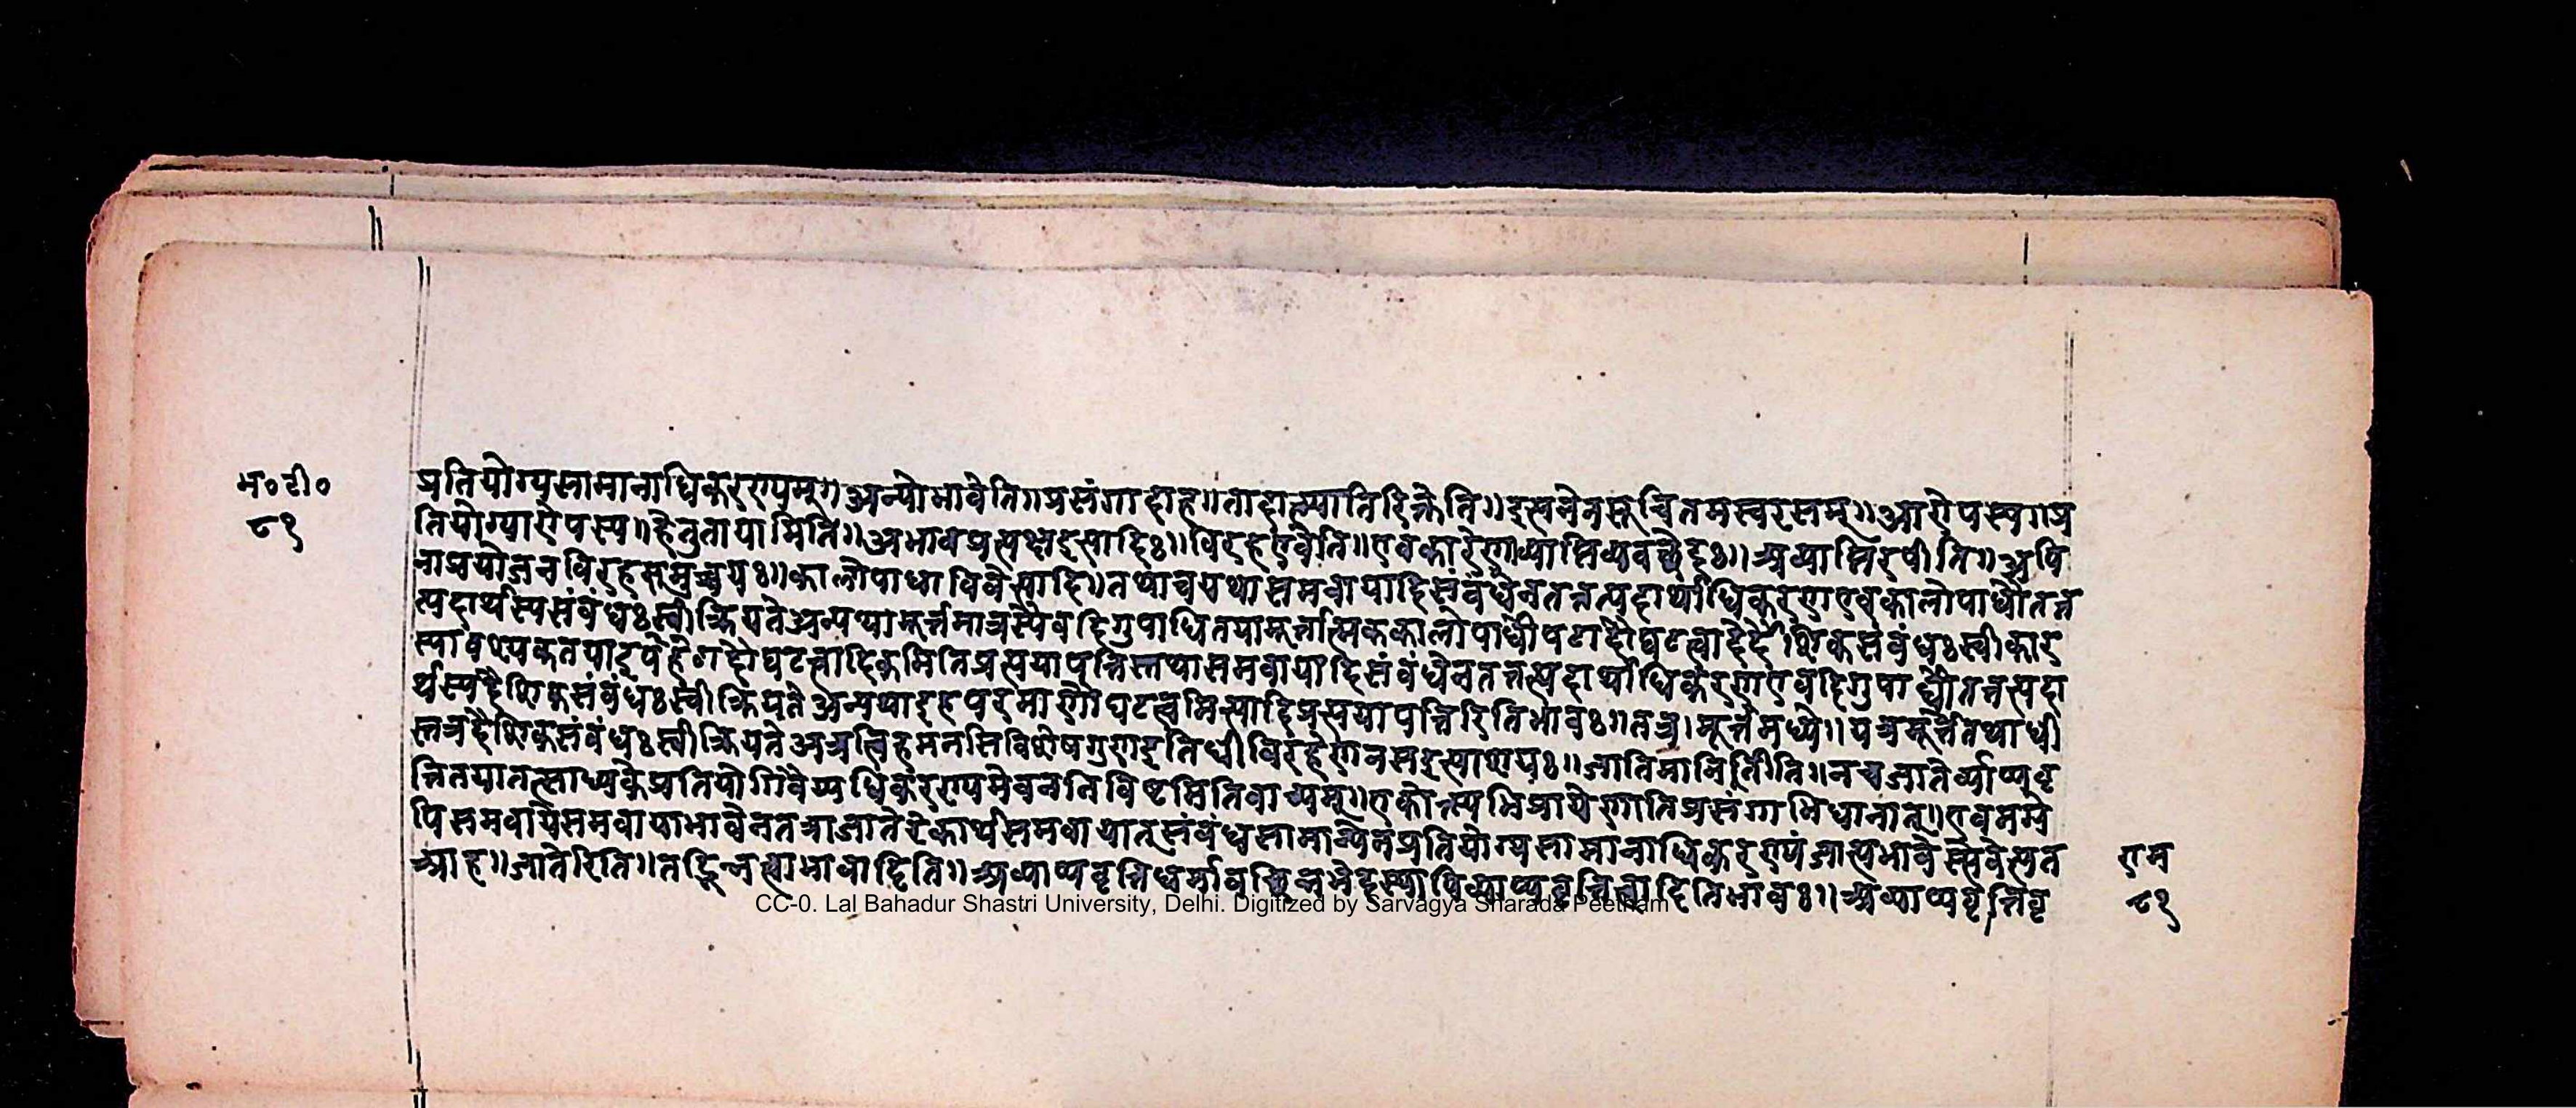 म॰टी॰
८१
प्रतियोग्यसामानाधिकरण्यम्॥अन्योभावेति॥प्रसंगादाह॥तादात्म्यातिरिक्तेति॥इत्यनेनसूचितमस्वरसम्॥आरोपस्य॥प्र
तियोग्यारोपस्य॥हेतुतायामिति॥अभावप्रत्यक्षइत्यादिः॥विरहएवेति॥एवकारेणाव्याप्तिव्यवच्छेदः॥अव्याप्तिरपीति॥अपि
नाप्रयोजनविरहसमुच्चयः॥कालोपाधाविवेत्यादि॥तथाचयथासमवायादिसंबंधेनतत्तत्पदार्थाधिकरणएवकालोपाधौतत्त
त्पदार्थस्यसंबंधःस्वीक्रियतेअन्यथामूर्त्तमात्रस्यैवदिगुपाधितयामूर्त्तात्मककालोपाधौघटादौघटत्वादेर्दैशिकसंबंधःस्वीकार
स्यावश्यकतया
र्थस्यदैशिकसंबंधःस्वीक्रियतेअन्यथाइहपरमाणौघटत्वमित्यादिप्रत्ययापत्तिरितिभावः॥तत्र।मूर्त्तमध्ये॥यत्रमूर्त्तेतथाधी
स्तत्रदैशिकसंबंधःस्वीक्रियतेअत्रत्विहमनसिविशेषगुणइतिधीविरहेणनसइत्याशयः॥जातिमानितीति॥नचजातेर्व्याप्यवृ
त्तितयातत्साध्यकेप्रतियोगिवैयधिकरण्यमेवननिविष्टमितिवाच्यम्॥एकोक्त्यभिप्रायेणातिप्रसंगाभिधानात्॥एवमग्रे
पिसमवायेसमवायाभावेनतत्राजातेरेकार्थसमवायात्संबंधसामान्येनप्रतियोग्यसामानाधिकरण्यंजात्यभावेस्त्येवेत्यत
आह॥जातेरिति॥तद्भिन्नत्वाभावादिति॥अव्याप्यवृत्तिधर्मावच्छिन्नभेदस्याविव्याप्यवृत्तित्वादितिभावः॥अव्याप्यवृत्तिवृ
राम
८१
CC-0. Lal Bahadur Shastri University, Delhi. Digitized by Sarvagya Sharada Peetham